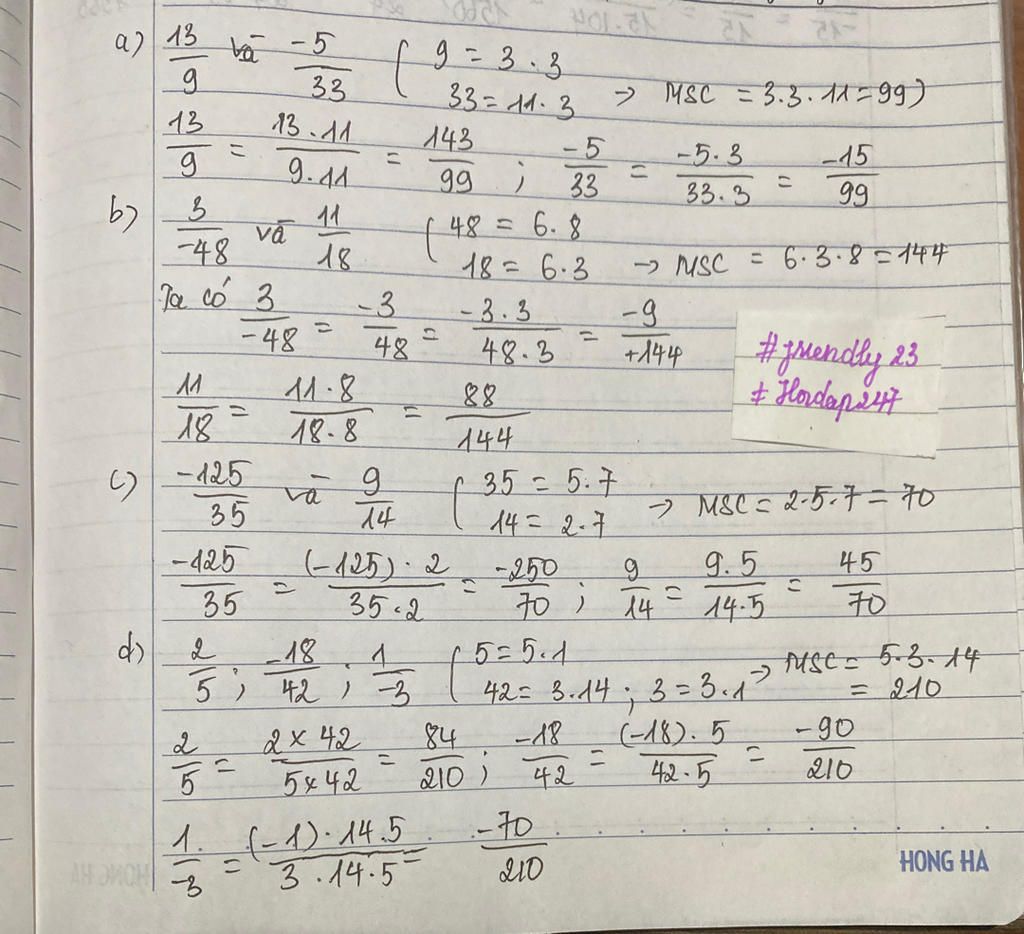 a) 13/9 và -5/33 ( 9 = 3 . 3
33 = 11 . 3 → MSC = 3.3.11 = 99)
13/9 = 13.11/9.11 = 143/99 ; -5/33 = -5.3/33.3 = -15/99
b) 3/-48 và 11/18 ( 48 = 6.8
18 = 6.3 → MSC = 6.3.8 = 144
Ta có 3/-48 = -3/48 = -3.3/48.3 = -9/+144
#friendly 23
# Hoidap247
11/18 = 11.8/18.8 = 88/144
c) -125/35 và 9/14 ( 35 = 5.7
14 = 2.7 → MSC = 2.5.7 = 70
-125/35 = (-125).2/35.2 = -250/70 ; 9/14 = 9.5/14.5 = 45/70
d) 2/5 ; -18/42 ; 1/-3 ( 5 = 5.1
42 = 3.14 ; 3 = 3.1 → MSC = 5.3.14
= 210
2/5 = 2×42/5×42 = 84/210 ; -18/42 = (-18).5/42.5 = -90/210
1/-3 = (-1).14.5/3.14.5 = -70/210
HONG HA